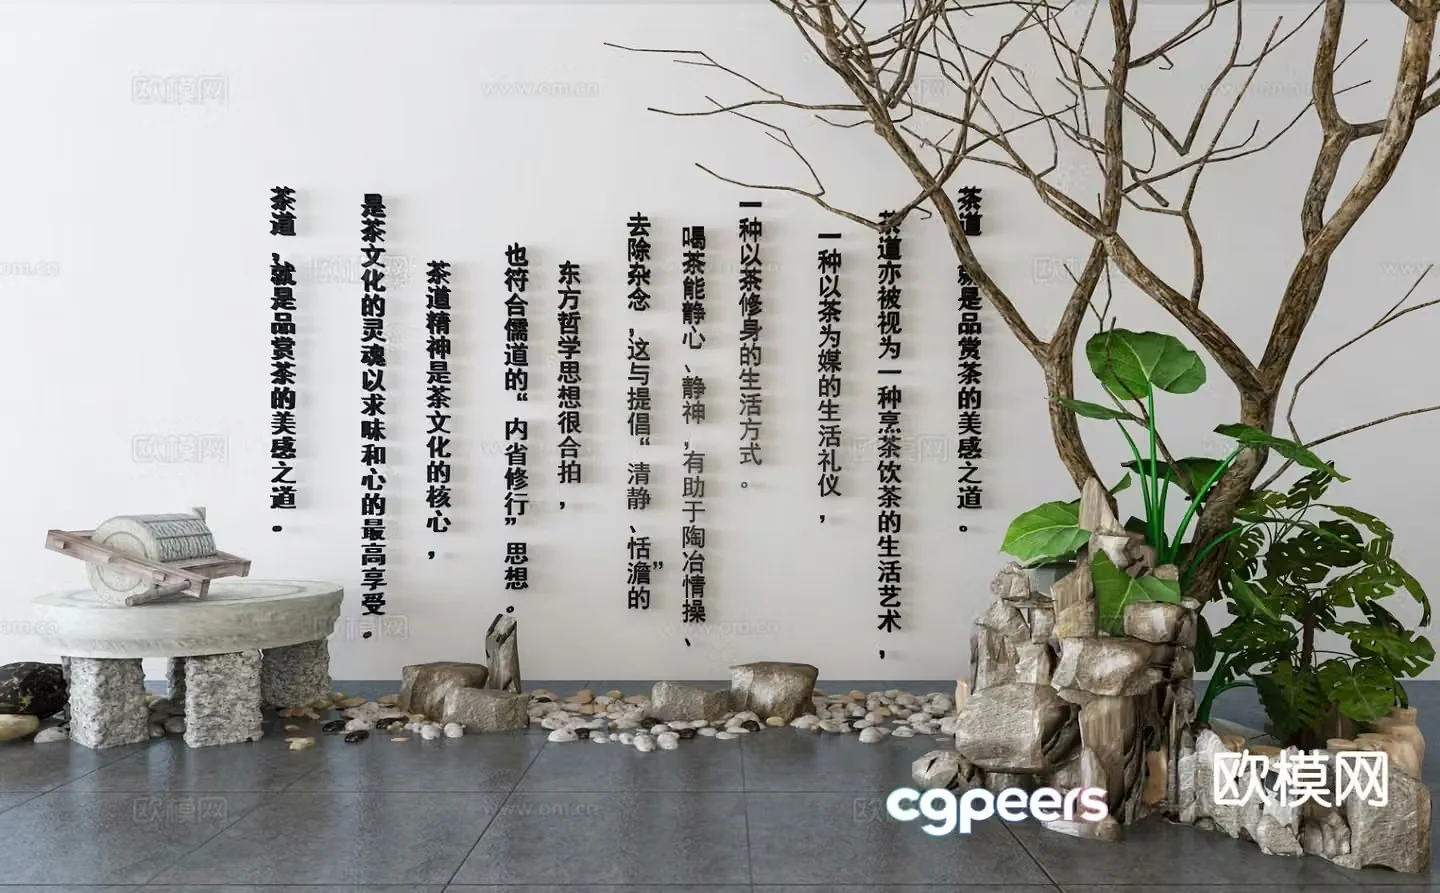 茶道 就是品赏茶的美感之道。
茶道亦被视为一种烹茶饮茶的生活艺术，
一种以茶为媒的生活礼仪，
一种以茶修身的生活方式。
喝茶能静心、静神，有助于陶冶情操、
去除杂念，这与提倡“清静、恬澹”的
东方哲学思想很合拍，
也符合儒道的“内省修行”思想。
茶道精神是茶文化的核心，
是茶文化的灵魂以求味和心的最高享受。
茶道，就是品赏茶的美感之道。
cgpeers
欧模网
欧模网
www.om.cn